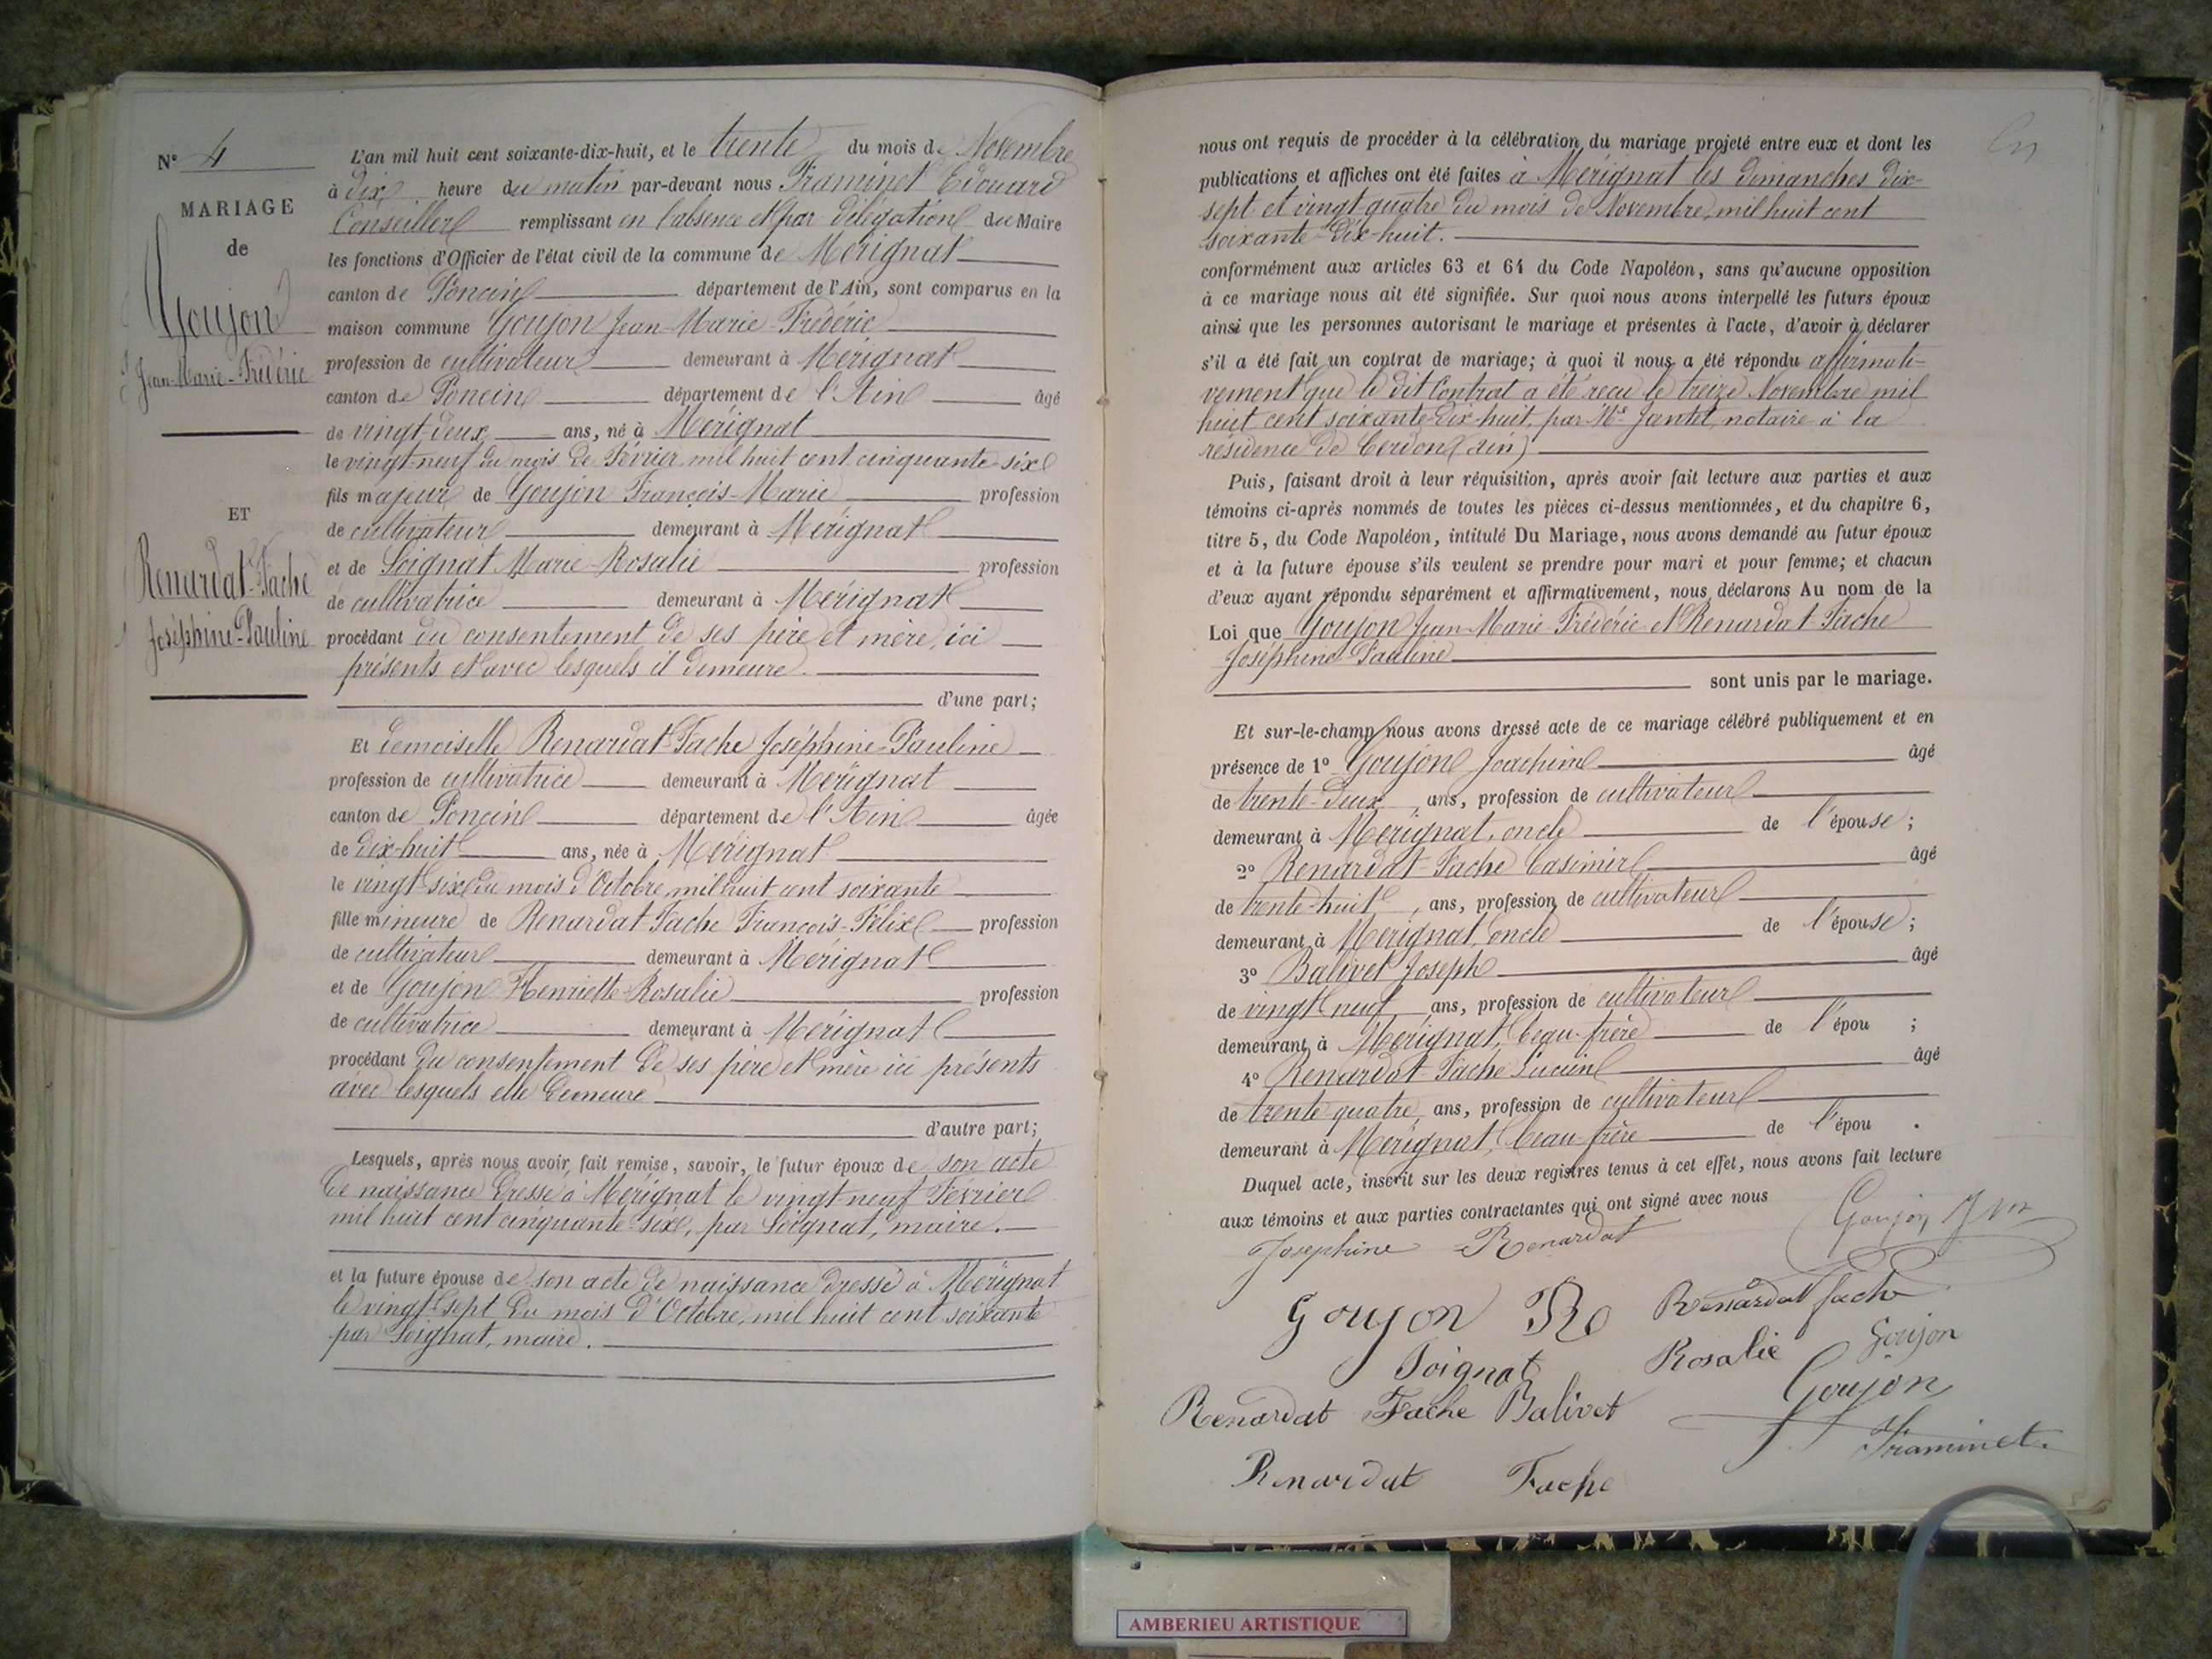 N° 4
MARIAGE
de
Goujon
Jean-Marie-Frédéric
ET
Renardat-Fache
Joséphine-Pauline
L'an mil huit cent soixante-dix-huit, et le trente du mois de Novembre
à dix heure du matin par-devant nous Framinet Edouard
Conseiller remplissant en l'absence et par délégation du Maire
les fonctions d'Officier de l'état civil de la commune de Mérignat
canton de Poncin département de l'Ain, sont comparus en la
maison commune Goujon Jean-Marie-Frédéric
profession de cultivateur demeurant à Mérignat
canton de Poncin département de l'Ain âgé
de vingt-deux ans, né à Mérignat
le vingt-neuf du mois de Février mil huit cent cinquante-six
fils majeur de Goujon François-Marie profession
de cultivateur demeurant à Mérignat
et de Soignat Marie-Rosalie profession
de cultivatrice demeurant à Mérignat
procédant du consentement de ses père et mère, ici
présents et avec lesquels il demeure.
d'une part;
Et demoiselle Renardat-Fache Joséphine-Pauline
profession de cultivatrice demeurant à Mérignat
canton de Poncin département de l'Ain âgée
de dix-huit ans, née à Mérignat
le vingt-six du mois d'Octobre mil huit cent soixante
fille mineure de Renardat-Fache François-Félix profession
de cultivateur demeurant à Mérignat
et de Goujon Henriette-Rosalie profession
de cultivatrice demeurant à Mérignat
procédant du consentement de ses père et mère ici présents
avec lesquels elle demeure
d'autre part;
Lesquels, après nous avoir fait remise, savoir, le futur époux de son acte
de naissance dressé à Mérignat le vingt-neuf Février
mil huit cent cinquante-six, par Soignat, maire.
et la future épouse de son acte de naissance dressé à Mérignat
le vingt-sept du mois d'Octobre, mil huit cent soixante
par Soignat, maire.
nous ont requis de procéder à la célébration du mariage projeté entre eux et dont les
publications et affiches ont été faites à Mérignat les dimanches dix-
sept et vingt quatre du mois de Novembre, mil huit cent
soixante-dix-huit.
conformément aux articles 63 et 64 du Code Napoléon, sans qu'aucune opposition
à ce mariage nous ait été signifiée. Sur quoi nous avons interpellé les futurs époux
ainsi que les personnes autorisant le mariage et présentes à l'acte, d'avoir à déclarer
s'il a été fait un contrat de mariage; à quoi il nous a été répondu affirmati-
vement que le dit Contrat a été reçu le treize Novembre mil
huit cent soixante-dix-huit, par Me Jantet, notaire à la
résidence de Cerdon (Ain)
Puis, faisant droit à leur réquisition, après avoir fait lecture aux parties et aux
témoins ci-après nommés de toutes les pièces ci-dessus mentionnées, et du chapitre 6,
titre 5, du Code Napoléon, intitulé Du Mariage, nous avons demandé au futur époux
et à la future épouse s'ils veulent se prendre pour mari et pour femme; et chacun
d'eux ayant répondu séparément et affirmativement, nous déclarons Au nom de la
Loi que Goujon Jean-Marie-Frédéric et Renardat-Fache
Joséphine-Pauline
sont unis par le mariage.
Et sur-le-champ nous avons dressé acte de ce mariage célébré publiquement et en
présence de 1° Goujon Joachim âgé
de trente-deux ans, profession de cultivateur
demeurant à Mérignat, oncle de l'épouse;
2° Renardat-Fache Casimir âgé
de trente-huit, ans, profession de cultivateur
demeurant à Mérignat, oncle de l'épouse;
3° Balivet Joseph âgé
de vingt neuf ans, profession de cultivateur
demeurant à Mérignat, beau-frère de l'épou ;
4° Renardat-Fache Lucien âgé
de trente quatre, ans, profession de cultivateur
demeurant à Mérignat, beau-frère de l'épou .
Duquel acte, inscrit sur les deux registres tenus à cet effet, nous avons fait lecture
aux témoins et aux parties contractantes qui ont signé avec nous
Goujon
Josephine Renardat
Goujon Renardat fache
Soignat Rosalie Goujon
Renardat Fache Balivet Goujon
Framinet
Renardat Fache
AMBERIEU ARTISTIQUE